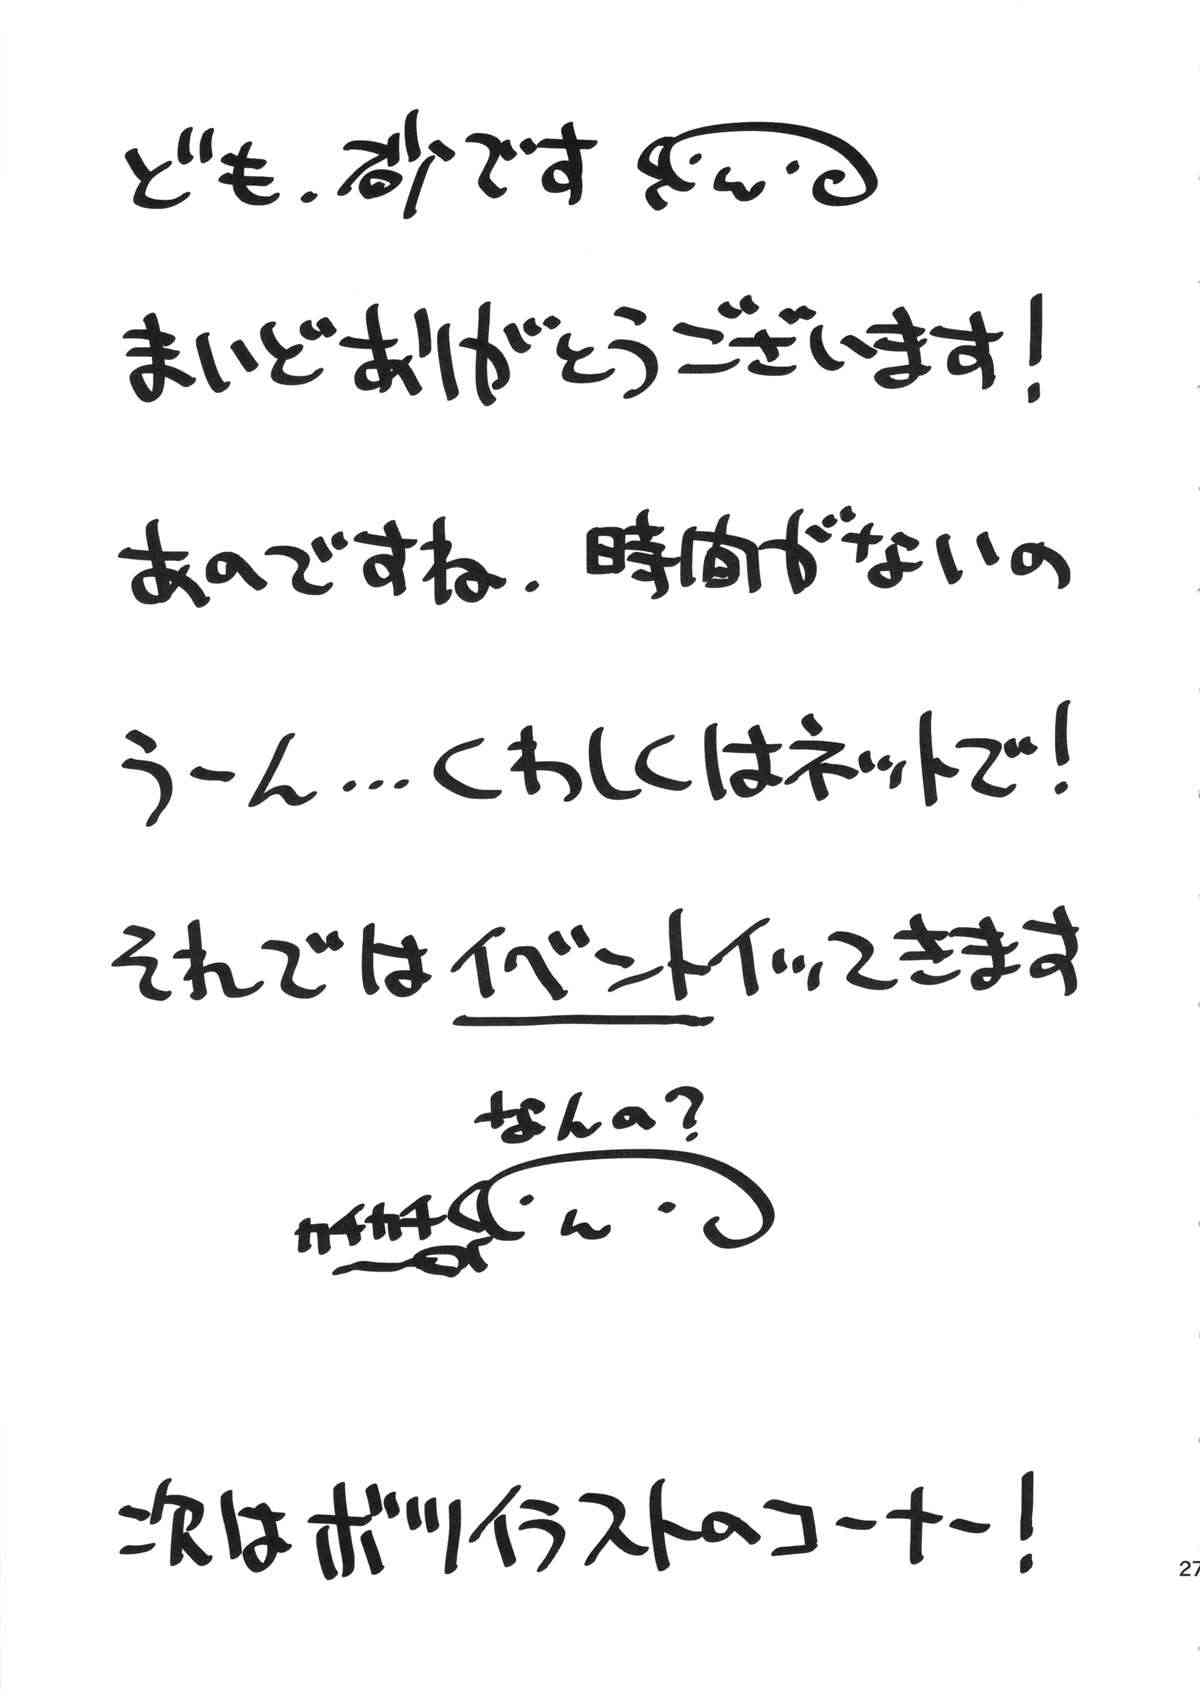 ども.砂です
まいどありがとうございます!
あのですね.時間がないの
うーん…くわしくはネットで!
それではイベントイッてきます
なんの?
カチカチ
次はボツイラストのコーナー!
27